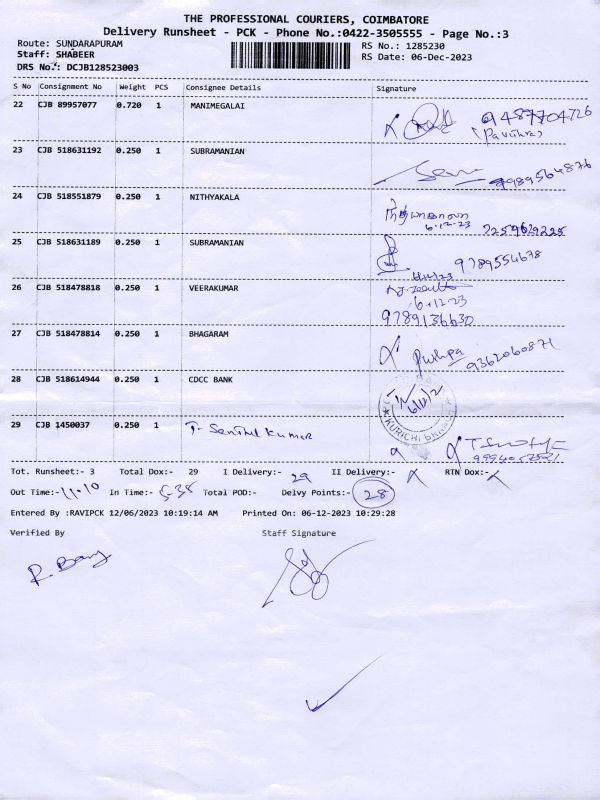 THE PROFESSIONAL COURIERS, COIMBATORE
Delivery Runsheet - PCK - Phone No.:0422-3505555 - Page No.:3
Route: SUNDARAPURAM
RS No.: 1285230
Staff: SHABEER
RS Date: 06-Dec-2023
DRS No.: DCJB128523003
S No Consignment No Weight PCS Consignee Details Signature
22 CJB 89957077 0.720 1 MANIMEGALAI
9487704726
(Pavithra)
23 CJB 518631192 0.250 1 SUBRAMANIAN
9789564876
24 CJB 518551879 0.250 1 NITHYAKALA
6.12.23
25 CJB 518631189 0.250 1 SUBRAMANIAN
9789554638
26 CJB 518478818 0.250 1 VEERAKUMAR
6.12.23
9789136630
27 CJB 518478814 0.250 1 BHAGARAM
Pushpa 9362060871
28 CJB 518614944 0.250 1 CDCC BANK
KURICHI BRANCH
29 CJB 1450037 0.250 1 T. Senthil Kumar
Tot. Runsheet:- 3 Total Dox:- 29 I Delivery:- 29 II Delivery:- RTN Dox:-
Out Time:- 11.10 In Time:- 5.35 Total POD:- Delvy Points:- 28
Entered By :RAVIPCK 12/06/2023 10:19:14 AM Printed On: 06-12-2023 10:29:28
Verified By Staff Signature